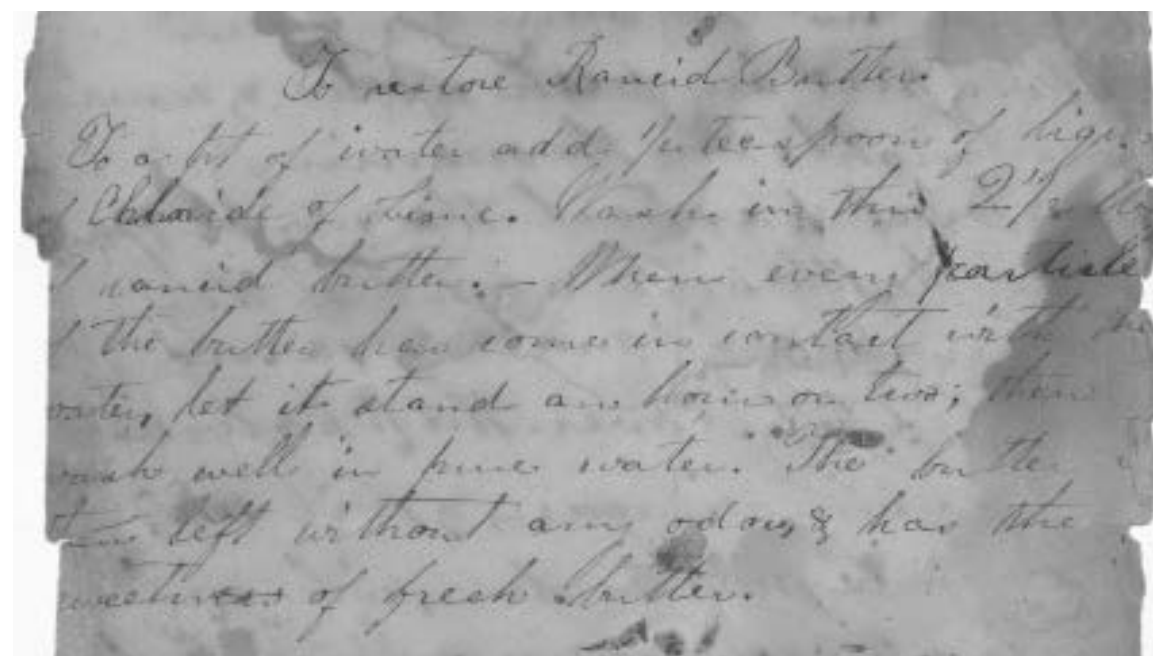 To restore Rancid Butter.
To a pt of water add 1/2 teaspoon of liqu
of Chloride of Lime. Wash in this 2 1/2
of rancid butter. — When every particle
of the butter has come in contact with
water, let it stand an hour or two; then
wash well in pure water. The butter is
then left without any odor, & has the
sweetness of fresh butter.